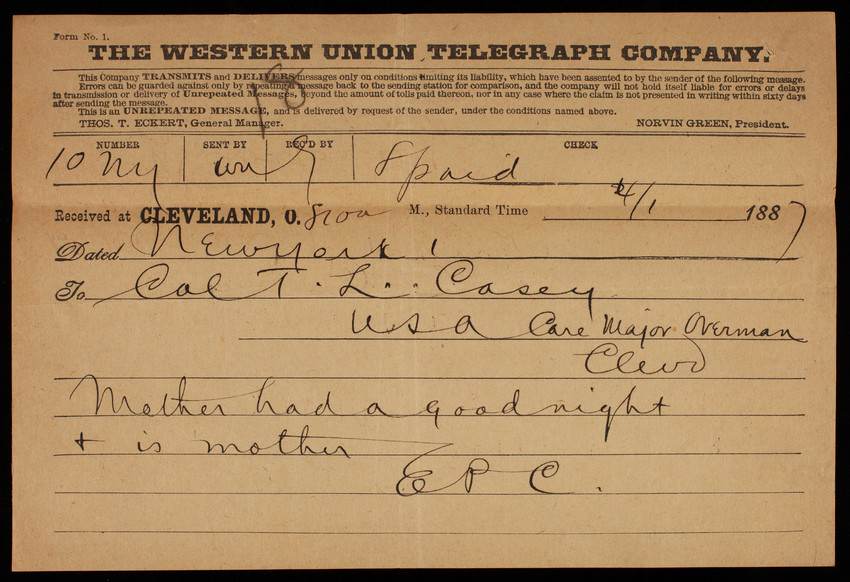 Form No. 1.
THE WESTERN UNION TELEGRAPH COMPANY.
This Company TRANSMITS and DELIVERS messages only on conditions limiting its liability, which have been assented to by the sender of the following message.
Errors can be guarded against only by repeating a message back to the sending station for comparison, and the company will not hold itself liable for errors or delays
in transmission or delivery of Unrepeated Messages, beyond the amount of tolls paid thereon, nor in any case where the claim is not presented in writing within sixty days
after sending the message.
This is an UNREPEATED MESSAGE, and is delivered by request of the sender, under the conditions named above.
THOS. T. ECKERT, General Manager. NORVIN GREEN, President.
18
NUMBER SENT BY REC'D BY CHECK
10 Ny 8 paid
Received at CLEVELAND, O. M., Standard Time 4/1 1887
Dated New york 1
To Col T. L. Casey
USA Care Major Overman
Clevd
Mother had a good night
+ is mother
E P C.